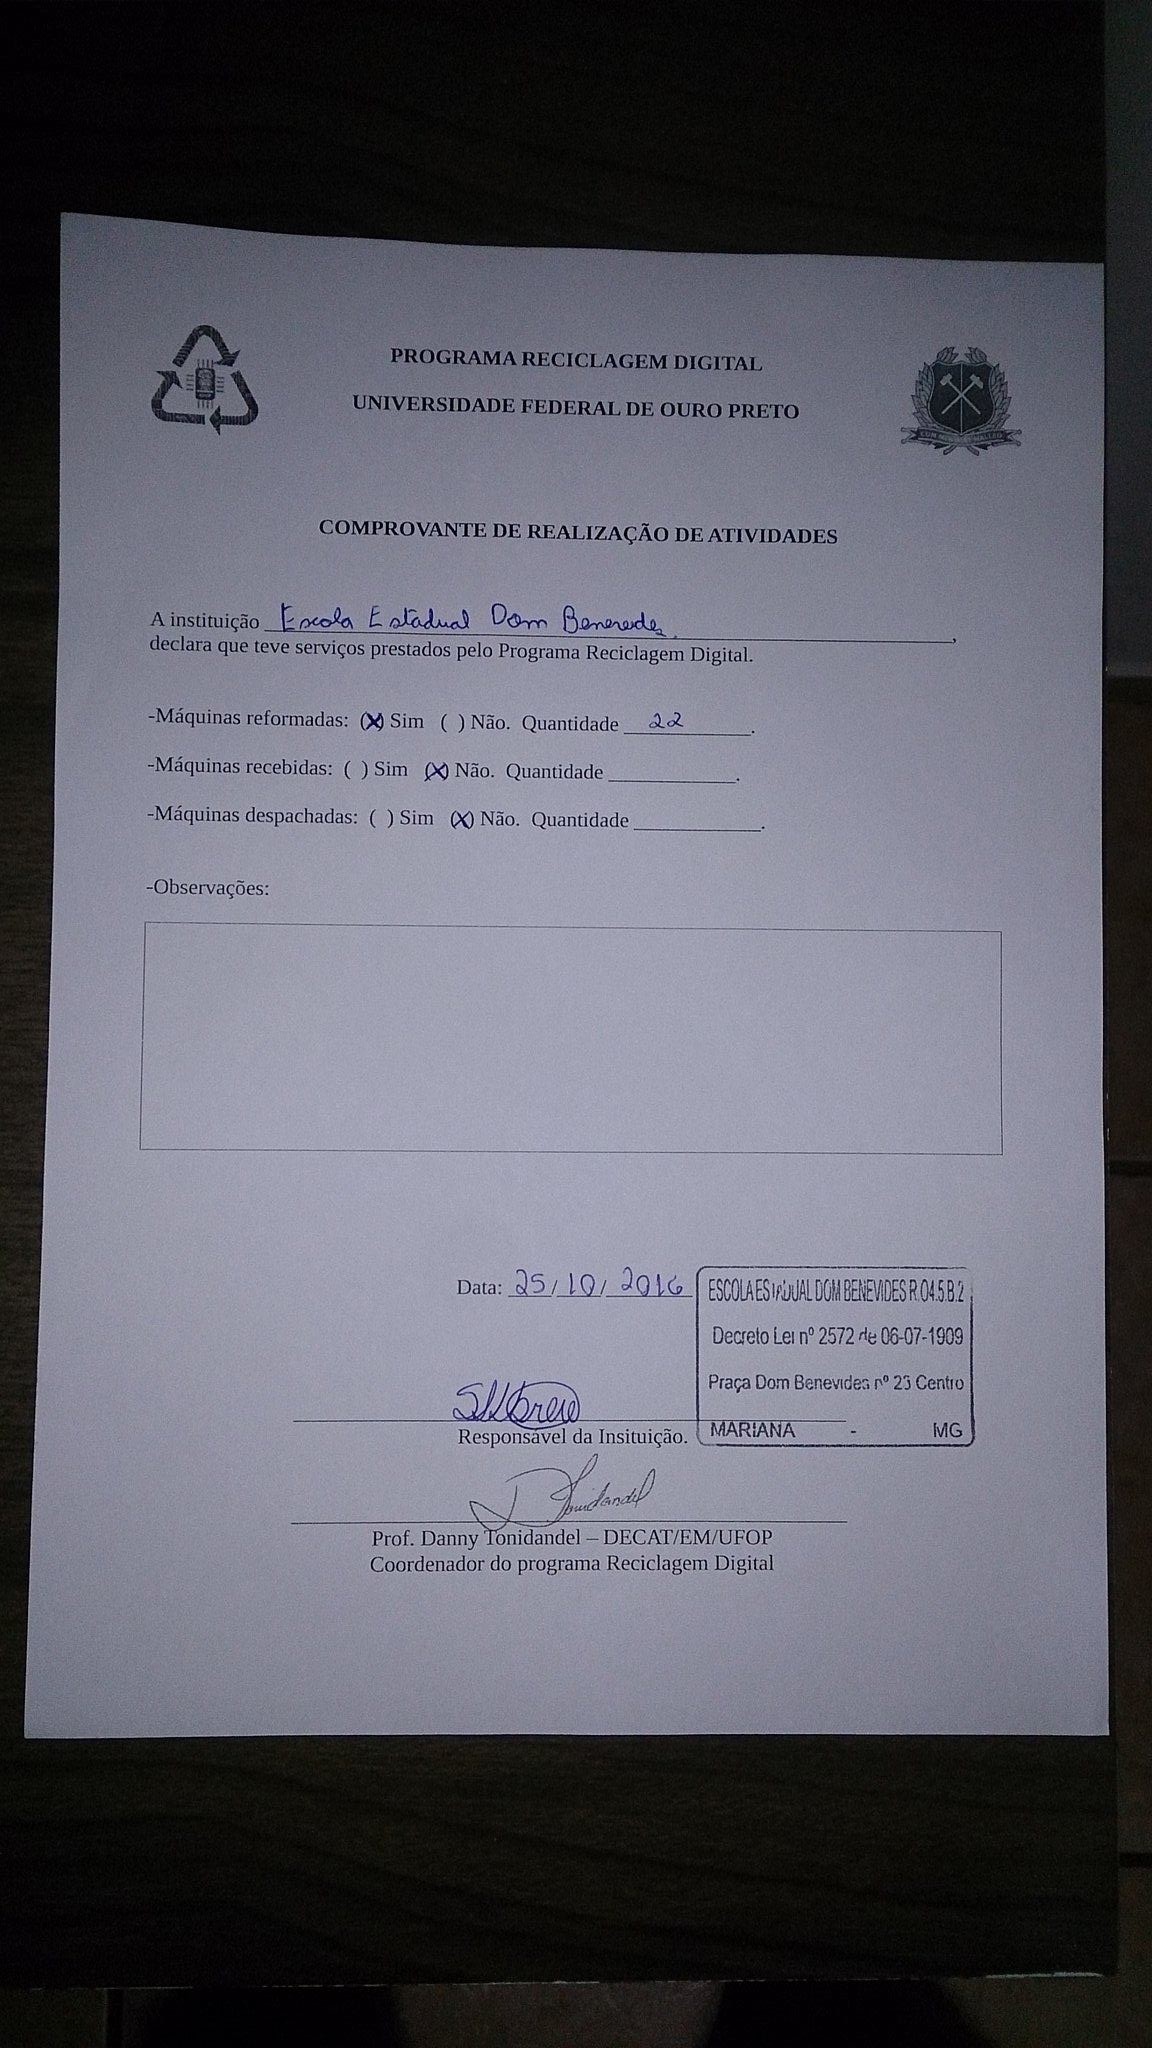 PROGRAMA RECICLAGEM DIGITAL
UNIVERSIDADE FEDERAL DE OURO PRETO
COMPROVANTE DE REALIZAÇÃO DE ATIVIDADES
A instituição Escola Estadual Dom Benevedes.,
declara que teve serviços prestados pelo Programa Reciclagem Digital.
-Máquinas reformadas: (X) Sim ( ) Não. Quantidade 22.
-Máquinas recebidas: ( ) Sim (X) Não. Quantidade ____________.
-Máquinas despachadas: ( ) Sim (X) Não. Quantidade ____________.
-Observações:
Data: 25/10/2016
ESCOLA ESTADUAL DOM BENEVIDES R.04.5.B.2
Decreto Lei nº 2572 de 06-07-1909
Praça Dom Benevides nº 23 Centro
MARIANA - MG
Responsável da Insituição.
Tonidandel
Prof. Danny Tonidandel – DECAT/EM/UFOP
Coordenador do programa Reciclagem Digital